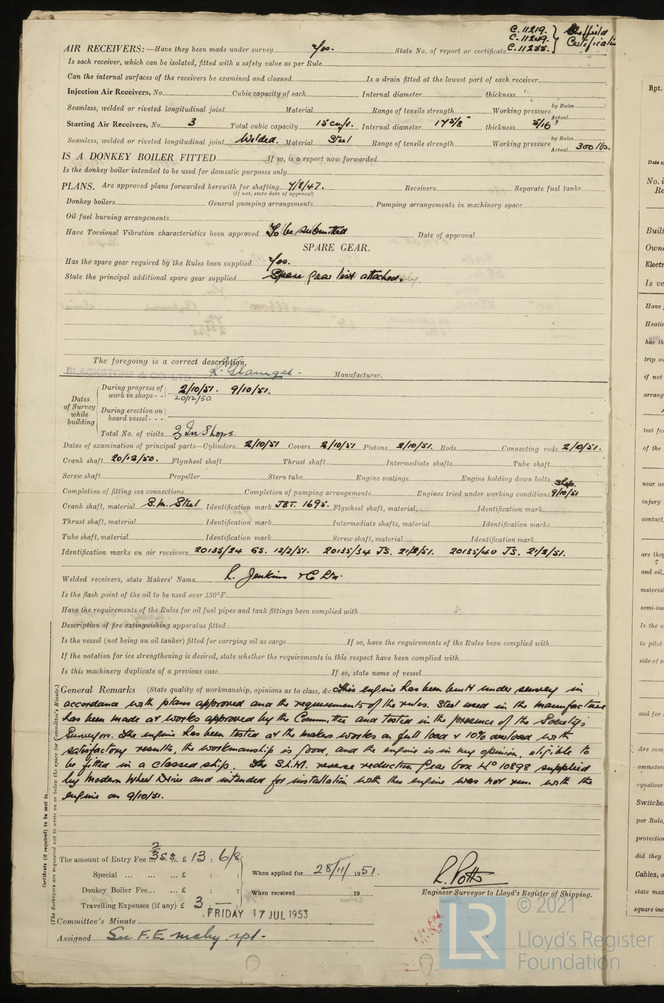 C.11219.
C.11249.
C.11255.
Sheffield
Certificates
AIR RECEIVERS:—Have they been made under survey Yes. State No. of report or certificate
Is each receiver, which can be isolated, fitted with a safety valve as per Rule
Can the internal surfaces of the receivers be examined and cleaned Is a drain fitted at the lowest part of each receiver
Injection Air Receivers, No. Cubic capacity of each Internal diameter thickness
Seamless, welded or riveted longitudinal joint Material Range of tensile strength Working pressure by Rules Actual
Starting Air Receivers, No. 3 Total cubic capacity 15 cu/ft. Internal diameter 17 5/8" thickness 5/16"
Seamless, welded or riveted longitudinal joint Welded. Material Steel Range of tensile strength Working pressure by Rules Actual 300 lbs.
IS A DONKEY BOILER FITTED If so, is a report now forwarded
Is the donkey boiler intended to be used for domestic purposes only
PLANS. Are approved plans forwarded herewith for shafting 7/8/47. Receivers Separate fuel tanks
(If not, state date of approval)
Donkey boilers General pumping arrangements Pumping arrangements in machinery space
Oil fuel burning arrangements
Have Torsional Vibration characteristics been approved To be submitted Date of approval
SPARE GEAR.
Has the spare gear required by the Rules been supplied Yes.
State the principal additional spare gear supplied Spare gear list attached.
The foregoing is a correct description,
BLACKSTONE & CO. LTD.
Manufacturer.
Dates of Survey while building
During progress of work in shops - - 2/10/51. 9/10/51.
20/12/50
During erection on board vessel - - -
Total No. of visits 3 In Shops.
Dates of examination of principal parts—Cylinders 2/10/51 Covers 2/10/51 Pistons 2/10/51. Rods Connecting rods 2/10/51.
Crank shaft 20/12/50. Flywheel shaft Thrust shaft Intermediate shafts Tube shaft
Screw shaft Propeller Stern tube Engine seatings Engine holding down bolts
Completion of fitting sea connections Completion of pumping arrangements Engines tried under working conditions Shop. 9/10/51
Crank shaft, material S.M. Steel Identification mark JBT. 1695. Flywheel shaft, material Identification mark
Thrust shaft, material Identification mark Intermediate shafts, material Identification marks
Tube shaft, material Identification mark Screw shaft, material Identification mark
Identification marks on air receivers 20135/24 GS. 12/2/51. 20135/34 JS. 21/2/51. 20135/40 JS. 21/2/51.
Welded receivers, state Makers' Name R. Jenkins & Co Ltd.
Is the flash point of the oil to be used over 150°F.
Have the requirements of the Rules for oil fuel pipes and tank fittings been complied with
Description of fire extinguishing apparatus fitted
Is the vessel (not being an oil tanker) fitted for carrying oil as cargo If so, have the requirements of the Rules been complied with
If the notation for ice strengthening is desired, state whether the requirements in this respect have been complied with
Is this machinery duplicate of a previous case If so, state name of vessel
General Remarks (State quality of workmanship, opinions as to class, &c. This engine has been built under survey in
accordance with plans approved and the requirements of the rules. Steel used in the manufacture
has been made at works approved by the Committee and tested in the presence of the Society's
Surveyor. The engine has been tested at the makers works on full load & 10% overload with
satisfactory results, the workmanship is good, and the engine is in my opinion, eligible to
be fitted in a classed ship. The S.L.M. reverse reduction gear box No 10898 supplied
by Modern Wheel Drive and intended for installation with this engine was not run with the
engine on 9/10/51.
Certificate (if required) to be sent to
(The Surveyors are requested not to write on or below the space for Committee's Minute.)
The amount of Entry Fee £ 13 : 6/8
Special £ :
Donkey Boiler Fee £ :
Travelling Expenses (if any) £ 3 : —
When applied for 28/11/1951.
When received 19
R. Potts
Engineer Surveyor to Lloyd's Register of Shipping.
FRIDAY 17 JUL 1953
Committee's Minute
Assigned See F.E. mchy rpt.
© 2021
LR
Lloyd's Register
Foundation
Rpt.